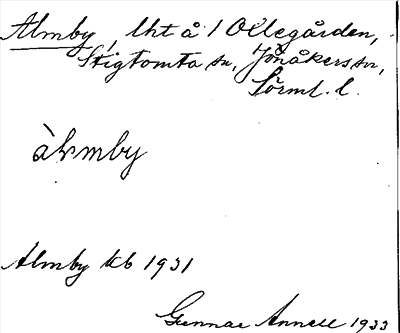 Almby, lht å 1 Ollegården,
Stigtomta sn, Jönåkers hd,
Södml. l.
àlmby
Almby kb 1931
Gunnar Annell 1933